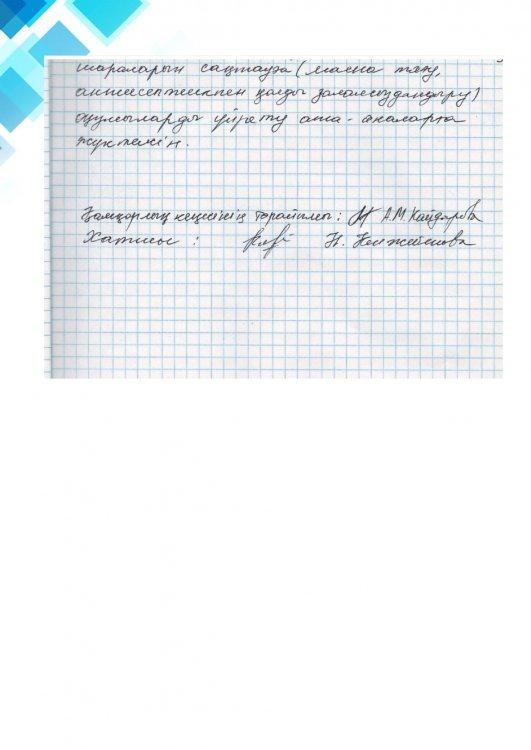 шараларын сақтауға (маска тағу,
антисептикпен қолды залалсыздандыру)
оқушыларды үйрету ата-аналарға
жүктелсін.
Қамқорлық кеңесінің төрайымы: А.М. Кайдарова
Хатшы: Н.